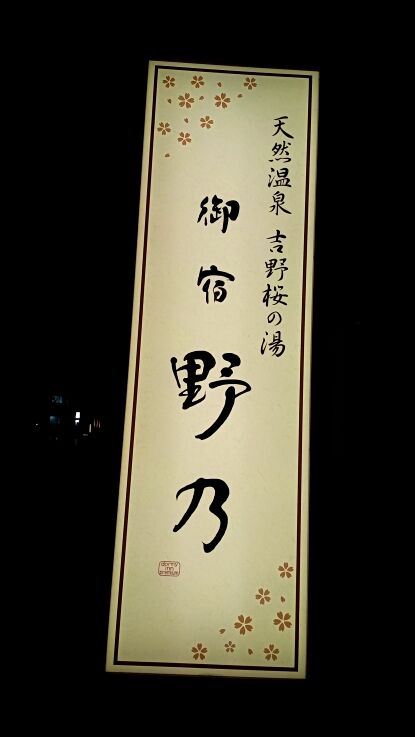 天然温泉 吉野桜の湯
御宿
野乃
dormy
inn
premium